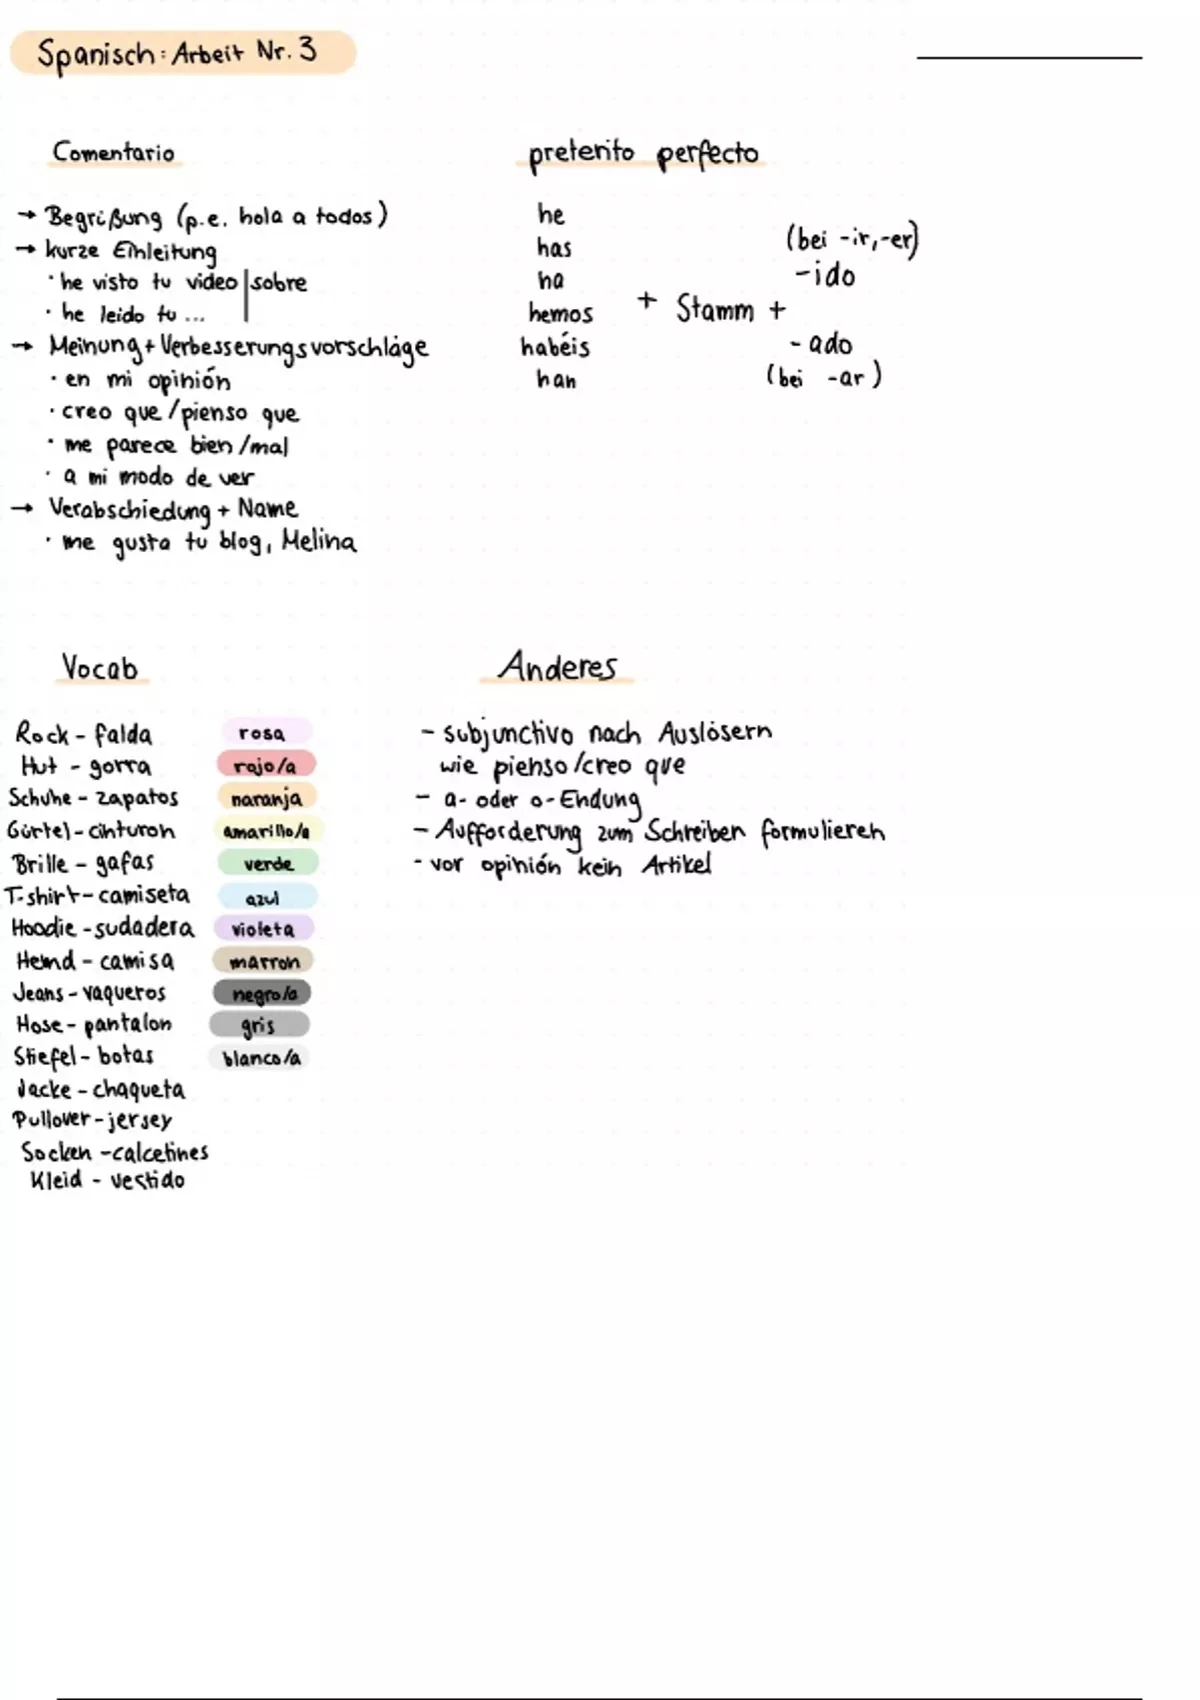 Spanisch: Arbeit Nr. 3
Comentario
→ Begrüßung (p.e. hola a todos)
→ kurze Einleitung
· he visto tu video | sobre
· he leido tu ...
→ Meinung + Verbesserungsvorschläge
· en mi opinión
· creo que / pienso que
· me parece bien / mal
· a mi modo de ver
→ Verabschiedung + Name
· me gusta tu blog, Melina
preterito perfecto
he
has
ha
hemos
habéis
han
+ Stamm +
(bei -ir,-er)
-ido
-ado
(bei -ar)
Vocab
Rock - falda
Hut - gorra
Schuhe - zapatos
Gürtel - cinturon
Brille - gafas
T-shirt - camiseta
Hoodie - sudadera
Hemd - camisa
Jeans - vaqueros
Hose - pantalon
Stiefel - botas
Jacke - chaqueta
Pullover - jersey
Socken - calcetines
Kleid - vestido
rosa
rojo/a
naranja
amarillo/a
verde
azul
violeta
marron
negro/a
gris
blanco/a
Anderes
- subjunctivo nach Auslösern
wie pienso/creo que
- a- oder o-Endung
- Aufforderung zum Schreiben formulieren
- vor opinión kein Artikel